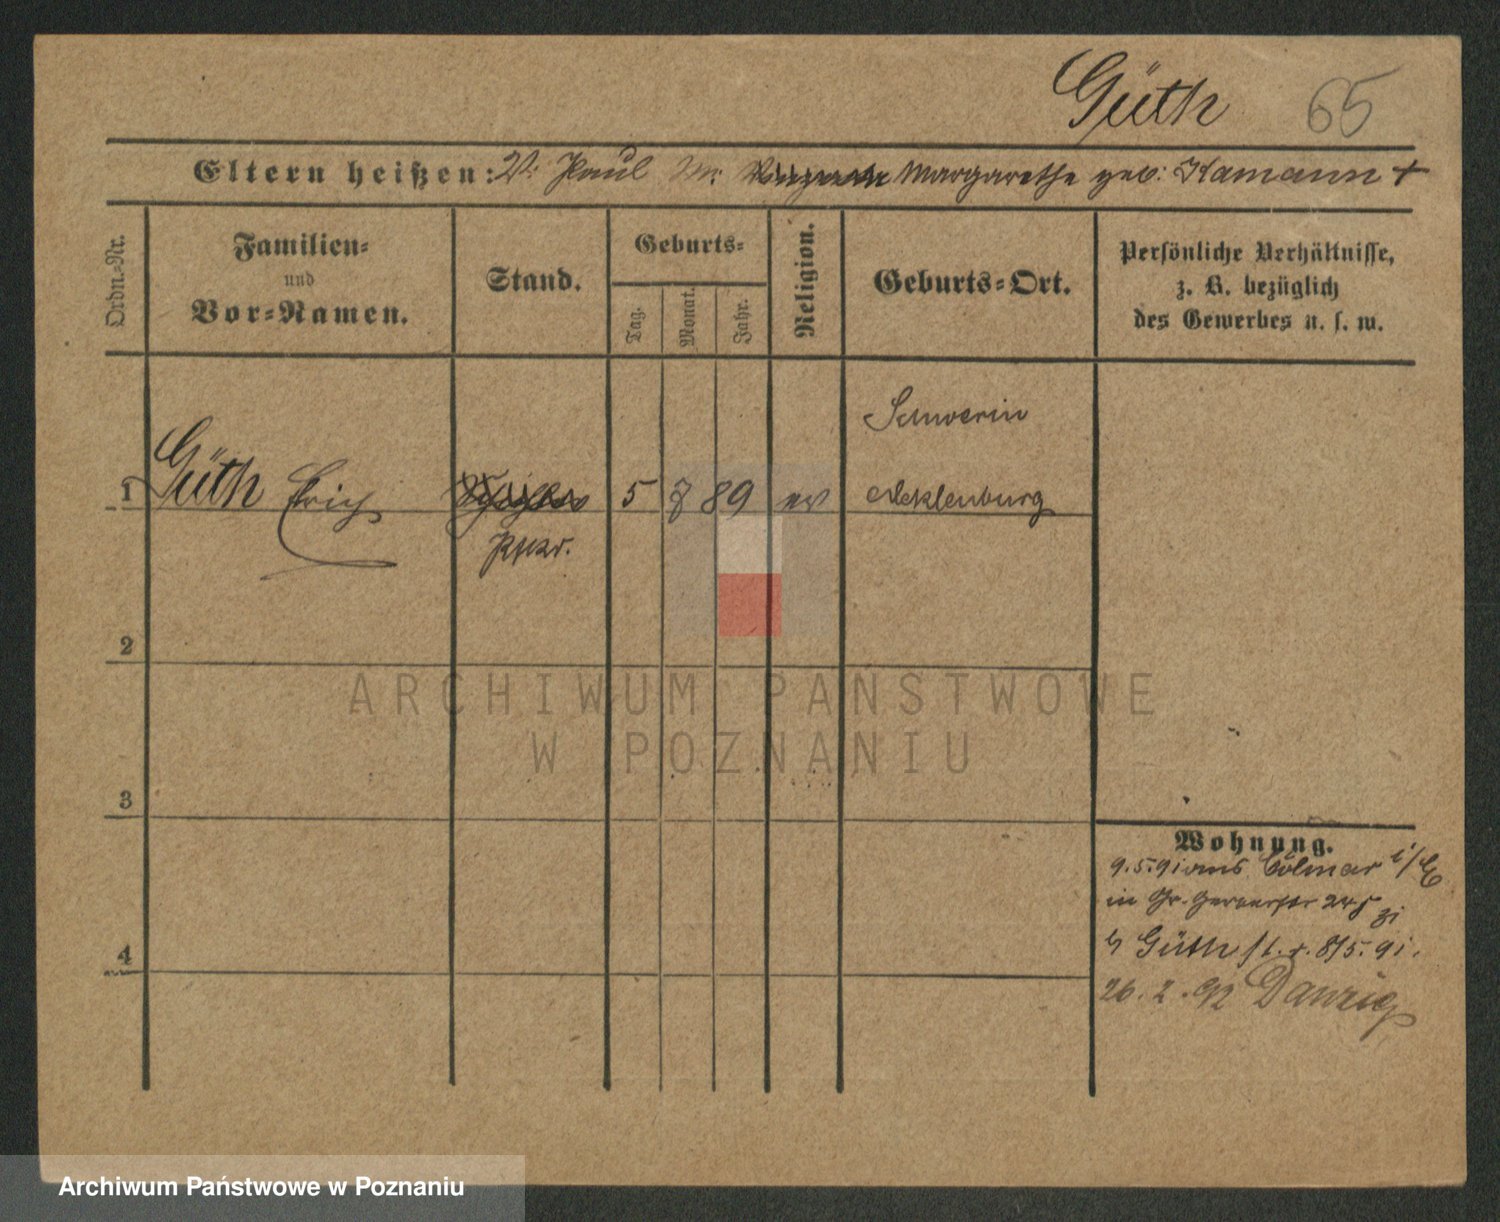 Güth 65
Eltern heißen: V: Paul M: Margarethe geb: Kamann +
Ordn.-Nr.
Familien-
und
Vor-Namen.
Stand.
Geburts-
Tag.
Monat.
Jahr.
Religion.
Geburts-Ort.
Persönliche Verhältnisse,
z. B. bezüglich
des Gewerbes u. s. w.
Schwerin
1 Güth Erich 5 7 89 ev Mecklenburg
2
3
4
Wohnung.
9.5.91 aus Colmar i/E
in Gr. Gerberstr
Güth 8/5.91.
26.2.92 Danzig
ARCHIWUM PAŃSTWOWE
W POZNANIU
Archiwum Państwowe w Poznaniu